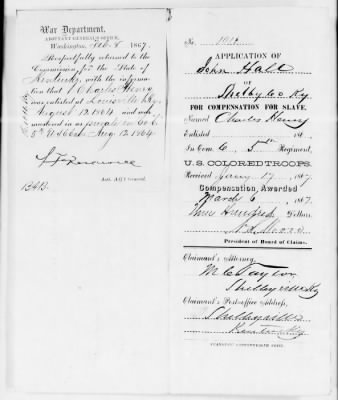 War Department,
ADJUTANT GENERAL'S OFFICE,
Washington, Feb. 8 1867.
Respectfully returned to the
Commission for the State of
Kentucky, with the informa-
tion that Charles Henry
was enlisted at Louisville Ky.
August 12, 1864, and was
mustered in as
5th U.S.C. Cav. Aug 12, 1864.
Asst. Adjt General.
No. 1014
APPLICATION OF
John Hall
OF
Shelby Co Ky
FOR COMPENSATION FOR SLAVE,
Named Charles Henry
Enlisted 186
In Com. C 5th Regiment,
U. S. COLORED TROOPS.
Received Jany 17, 1867
Compensation Awarded
March 6 1867
Three Hundred Dollars.
President of Board of Claims.
Claimant's Attorney,
M C Taylor
Shelbyville Ky
Claimant's Post-office Address,
Shelbyville
Kentucky